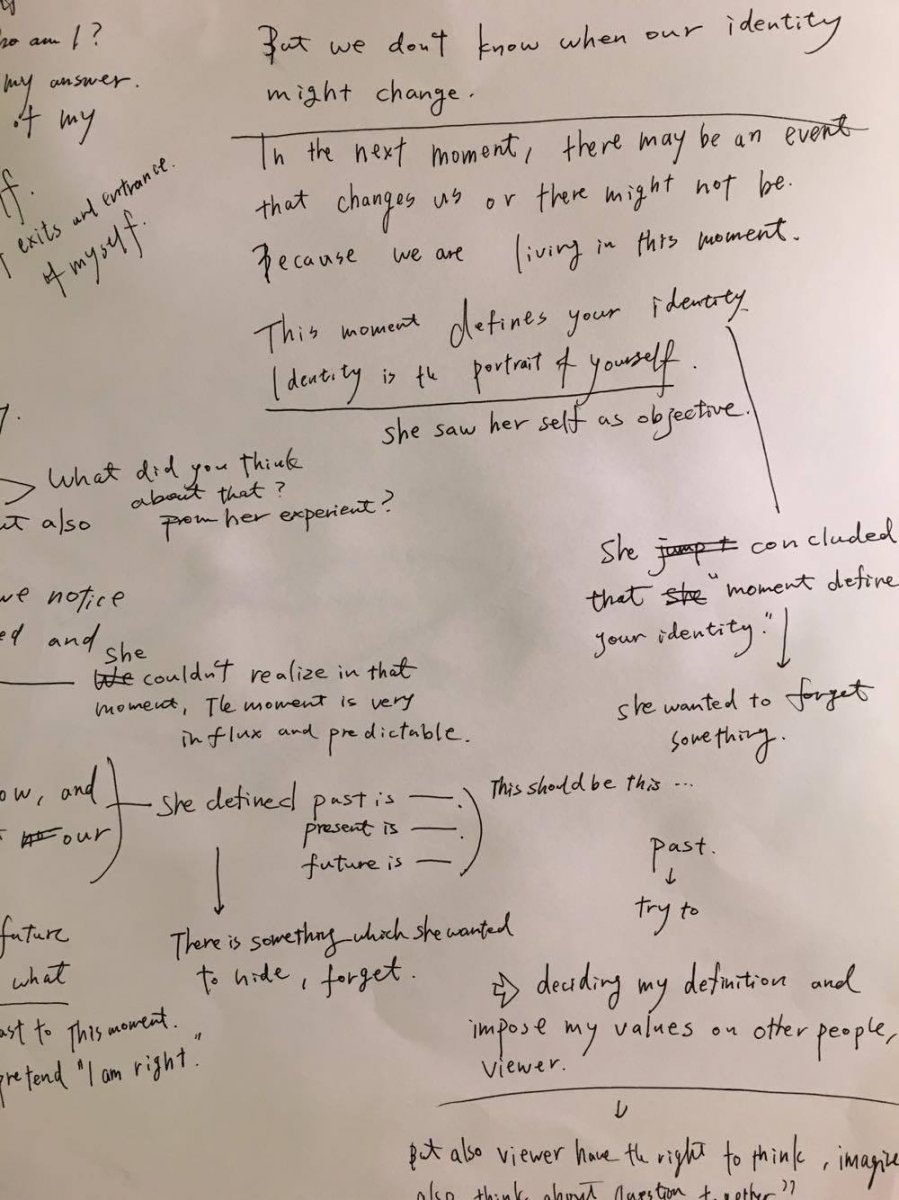 who am I?
my answer.
of my
f.
exits and entrance.
of myself.
But we don't know when our identity
might change.
In the next moment, there may be an event
that changes us or there might not be.
Because we are living in this moment.
This moment defines your identity
Identity is the portrait of yourself.
she saw her self as objective.
What did you think
about that?
from her experient?
ut also
She jump t concluded
that she "moment define
your identity."
we notice
ed and
She
We couldn't realize in that
moment, The moment is very
influx and predictable.
she wanted to forget
something.
ow, and
not our
She defined past is —.
present is —.
future is —
This should be this ...
past.
↓
try to
future
what
There is something which she wanted
to hide, forget.
ast to This moment.
pretend "I am right."
⇒ deciding my definition and
impose my values on other people,
viewer.
But also viewer have the right to think, imagine
also think about question together"